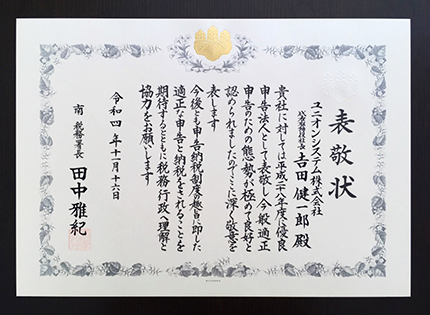 表敬状
ユニオンシステム株式会社
代表取締役社長 吉田健一郎殿
貴社に対しては平成二十八年度に優良
申告法人として表敬し今般適正
申告のための態勢が極めて良好と
認められましたのでここに深く敬意を
表します
今後とも申告納税制度の趣旨に即した
適正な申告と納税をされることを
期待するとともに税務行政へ理解と
協力をお願いします
令和四年十一月十六日
南税務署長 田中雅紀